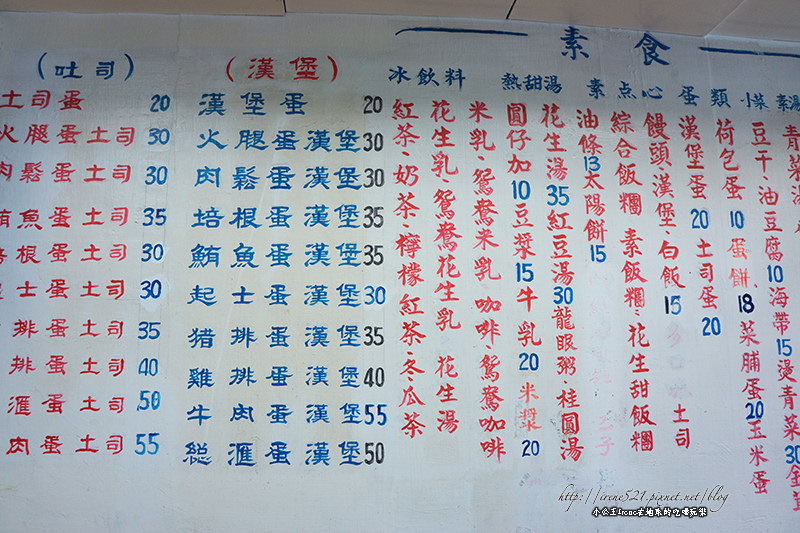 (吐司)
土司蛋 20
火腿蛋土司 30
肉鬆蛋土司 30
鮪魚蛋土司 35
培根蛋土司 30
起士蛋土司 30
排蛋土司 35
排蛋土司 40
滙蛋土司 50
肉蛋土司 55
(漢堡)
漢堡蛋 20
火腿蛋漢堡 30
肉鬆蛋漢堡 30
培根蛋漢堡 35
鮪魚蛋漢堡 35
起士蛋漢堡 30
猪排蛋漢堡 35
雞排蛋漢堡 40
牛肉蛋漢堡 55
総滙蛋漢堡 50
素食
冰飲料
紅茶·奶茶·檸檬紅茶·冬瓜茶
花生乳·鴛鴦花生乳 花生湯
米乳·鴛鴦米乳 咖啡·鴛鴦咖啡
熱甜湯
圓仔加10豆漿15牛乳20米漿20
花生湯35紅豆湯30龍眼粥·桂圓湯
素点心
油條13太陽餅15
綜合飯糰 素飯糰·花生甜飯糰
饅頭漢堡·白飯15 土司
蛋類
漢堡蛋20土司蛋20
荷包蛋10蛋餅18菜脯蛋20玉米蛋
小菜
豆干·油豆腐10海帶15燙青菜30
素湯
青菜湯
http://irene521.pixnet.net/blog
小公主Irene去地球的吃喝玩樂